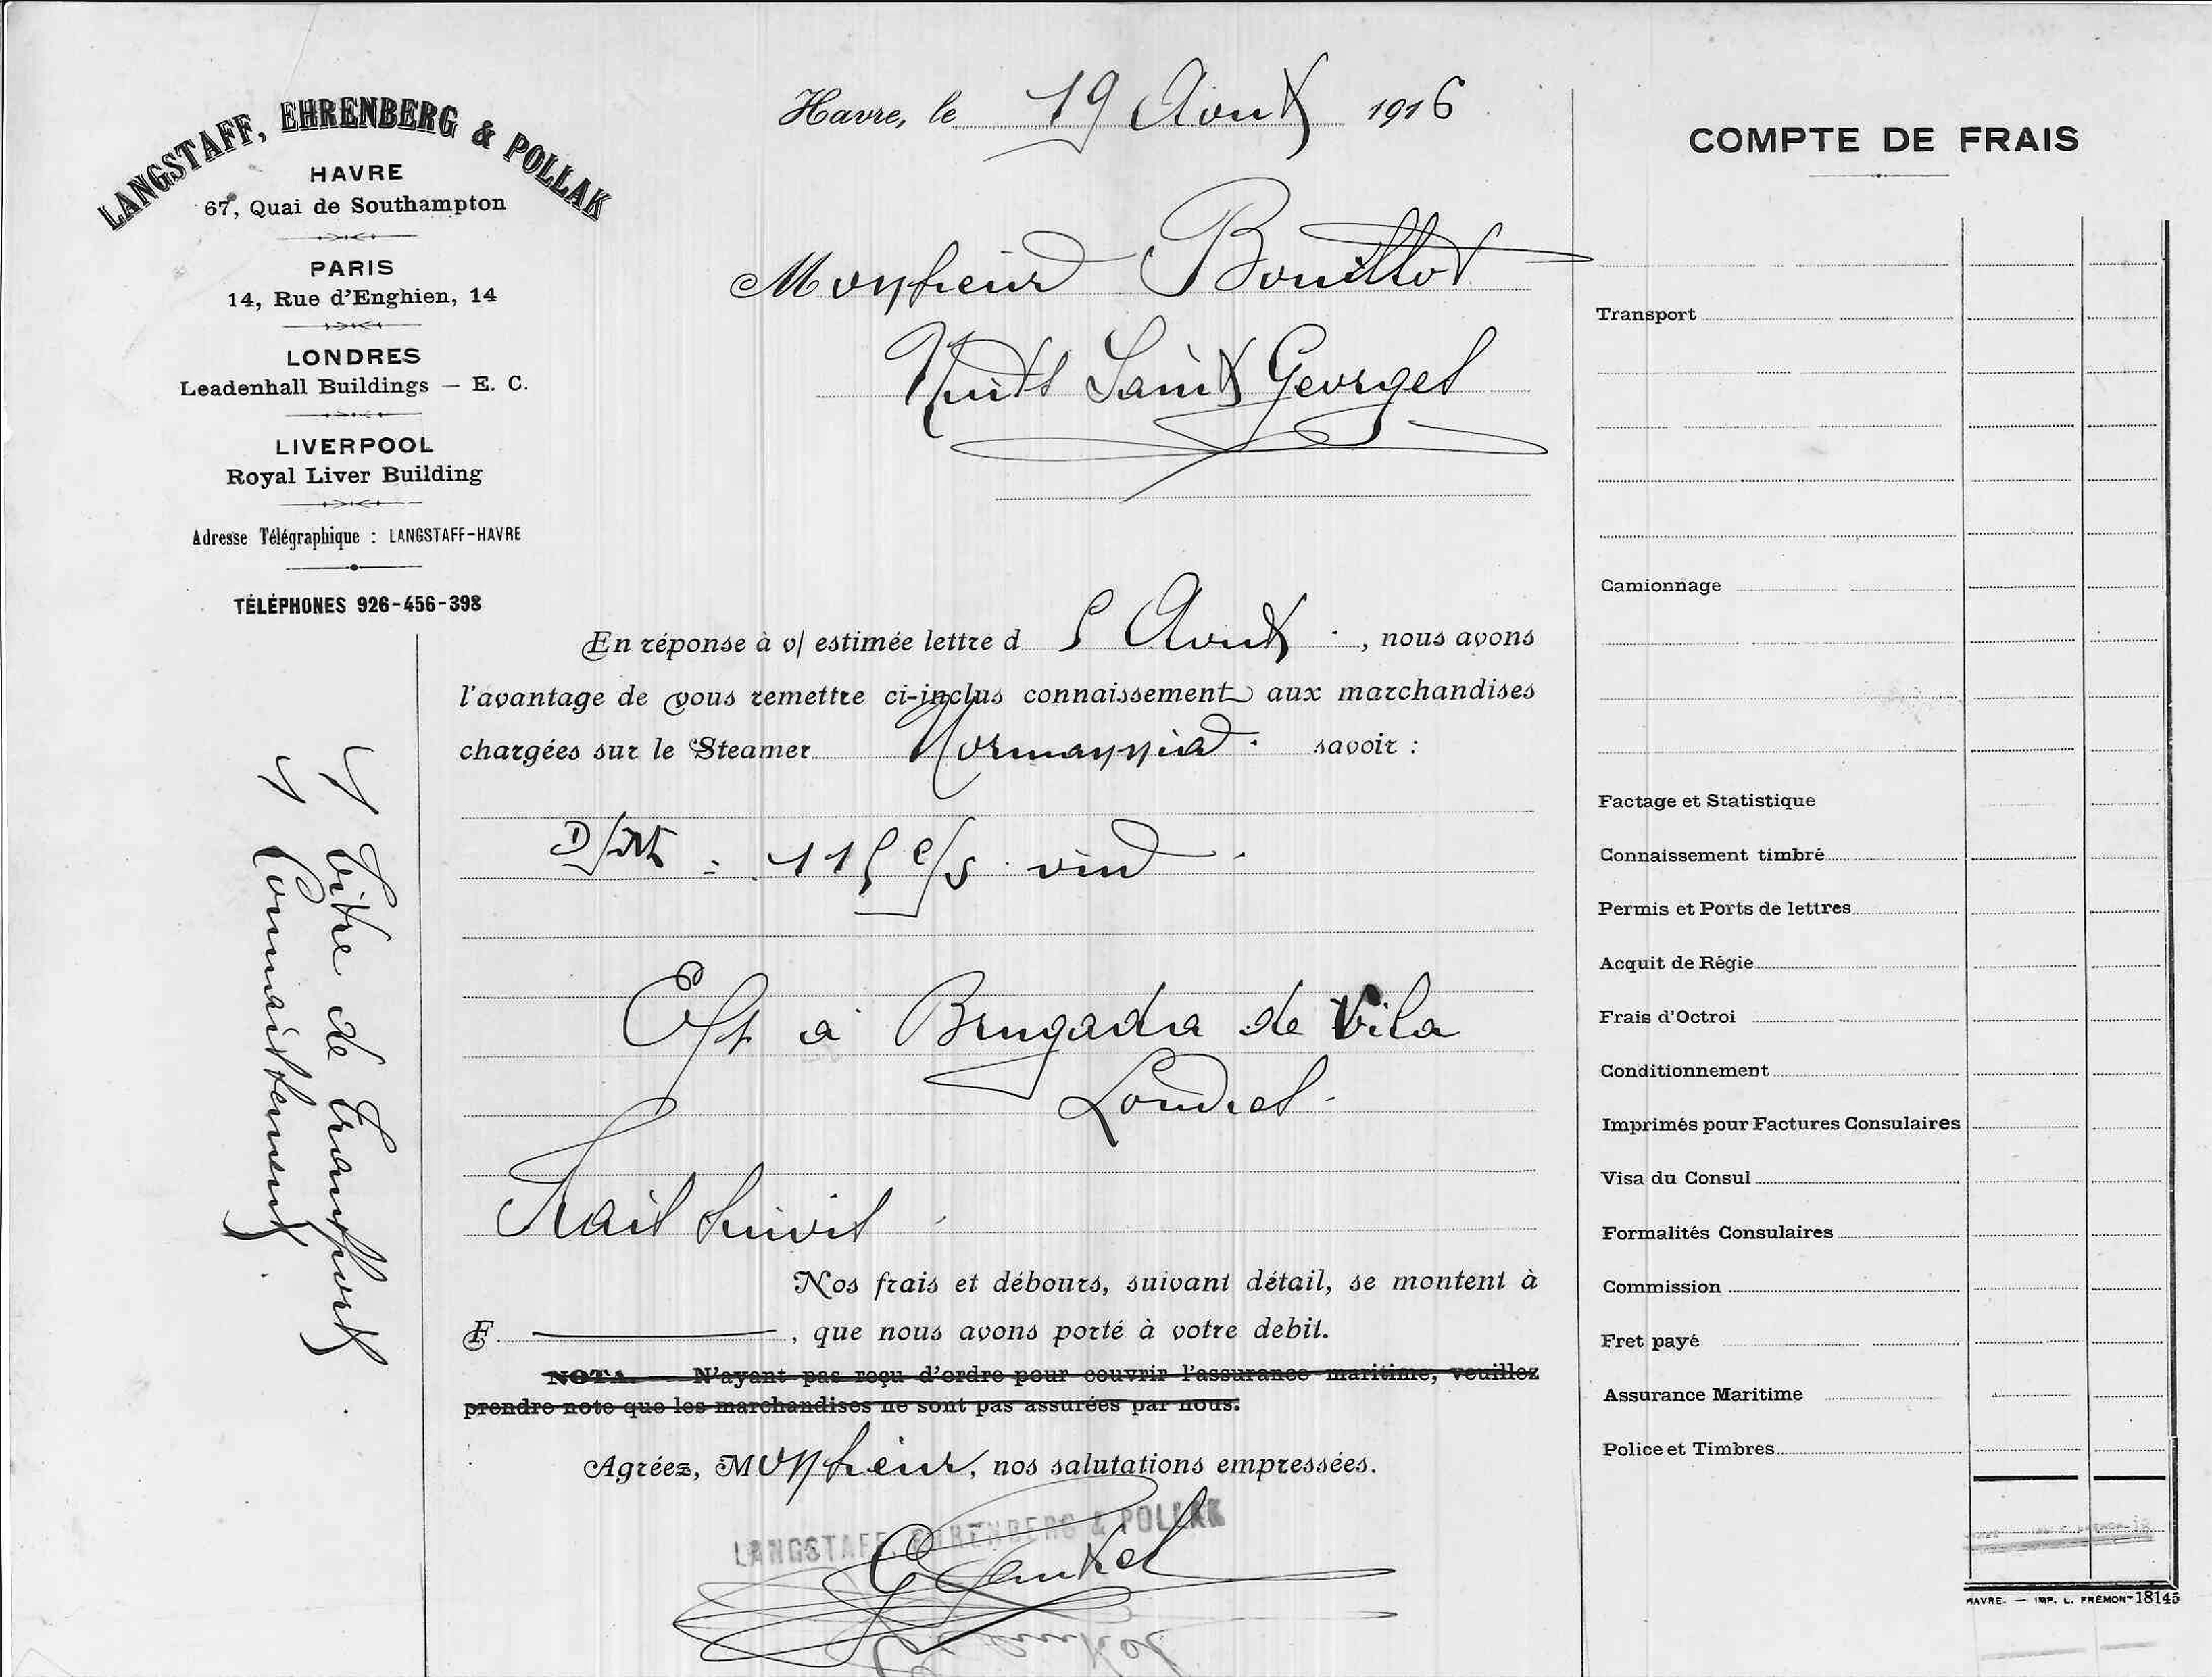 LANGSTAFF, EHRENBERG & POLLAK
HAVRE
67, Quai de Southampton
PARIS
14, Rue d'Enghien, 14
LONDRES
Leadenhall Buildings — E. C.
LIVERPOOL
Royal Liver Building
Adresse Télégraphique : LANGSTAFF-HAVRE
TÉLÉPHONES 926-456-398
Havre, le 19 Aout 1916
Monsieur Bouillot
Nuits Saint Georges
En réponse à v/ estimée lettre d 5 Aout, nous avons
l'avantage de vous remettre ci-inclus connaissement aux marchandises
chargées sur le Steamer Normannia savoir :
115 c/s vin
à Brugada de Vila
Londres
Frais suivis
Nos frais et débours, suivant détail, se montent à
F. , que nous avons porté à votre debit.
NOTA. — N'ayant pas reçu d'ordre pour couvrir l'assurance maritime, veuillez
prendre note que les marchandises ne sont pas assurées par nous.
Agréez, Monsieur, nos salutations empressées.
LANGSTAFF, EHRENBERG & POLLAK
1 titre de transport
1 Connaissement
COMPTE DE FRAIS
Transport
Camionnage
Factage et Statistique
Connaissement timbré
Permis et Ports de lettres
Acquit de Régie
Frais d'Octroi
Conditionnement
Imprimés pour Factures Consulaires
Visa du Consul
Formalités Consulaires
Commission
Fret payé
Assurance Maritime
Police et Timbres
HAVRE. — IMP. L. FREMONT 18145